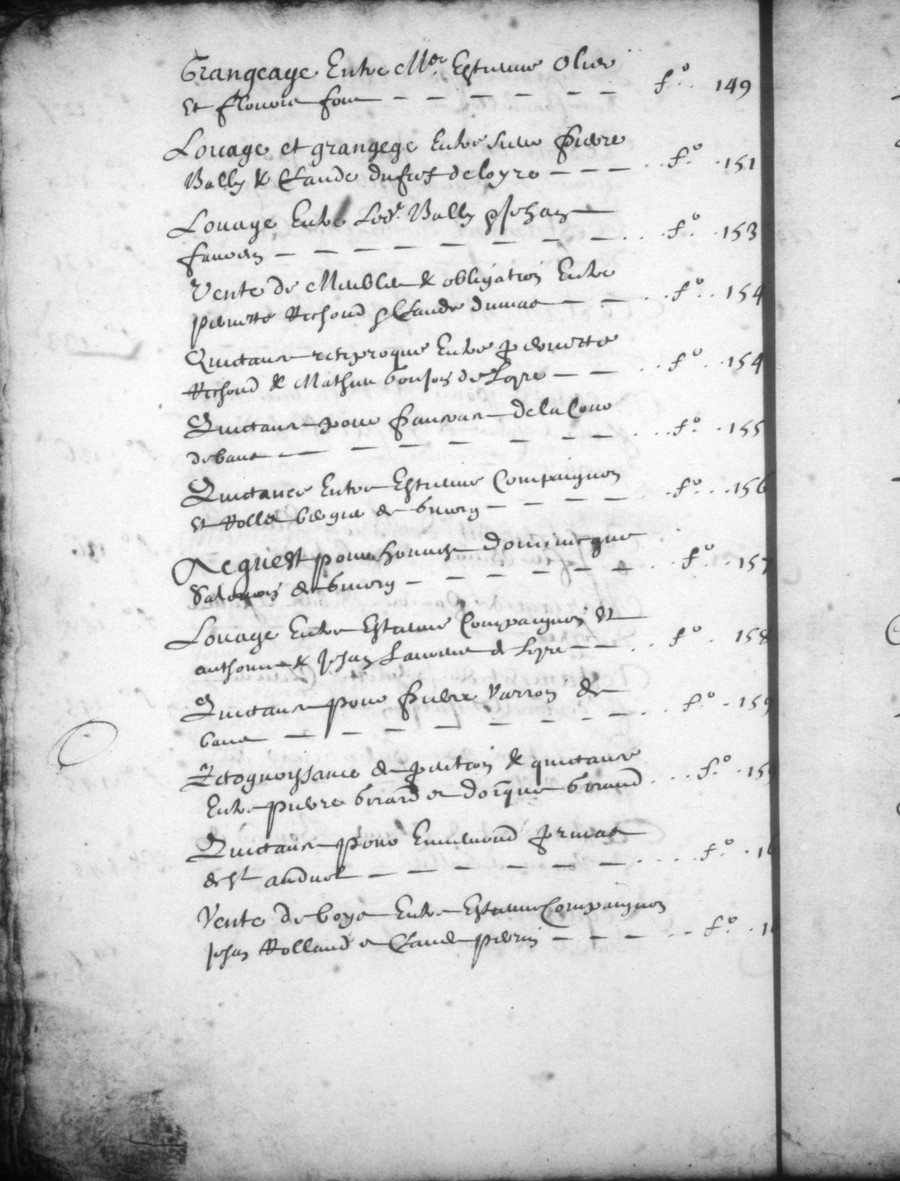 Grangeage Entre Mre Estienne Olier
Et fleurie fo 149
Louage et grangege Entre sieur Pierre
Bally & Claude de loyre f° 151
Louage Entre Led. Bally & Jehan
f° 153
Vente de Meuble & obligation Entre
pierrette Richond & Claude dumas f° 154
Quictance reciproque Entre pierrette
Richond & Mathieu Goujon de Loyre f° 154
Quictance pour francois de la Cour
debaut f° 155
Quictance Entre Estienne Compaignon
et Rolle de Givory f° 156
Acquest pour honneste dominicque
Salomon de Givory f° 157
Louage Entre Estienne Compaignon Et
anthoine & Jehan de Loyre f° 158
Quictance pour Pierre Varron de
f° 159
Recognoissance de pention & quictance
Entre pierre Girard et Girard f° 15
Quictance pour Ennemond privat
de St andeol f° 1
Vente de boys Entre Estienne Compaignon
Jehan Rolland et Claude perrin f° 1